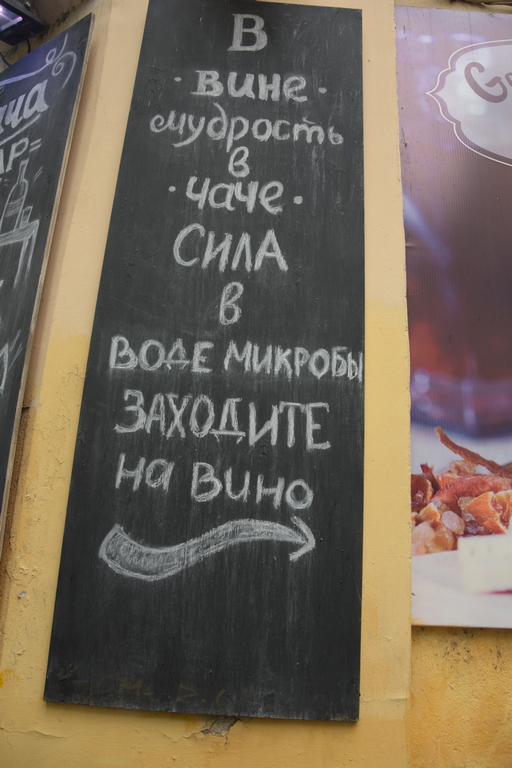 В
· вине ·
мудрость
в
· чаче ·
СИЛА
в
ВОДЕ МИКРОБЫ
ЗАХОДИТЕ
на ВИНО